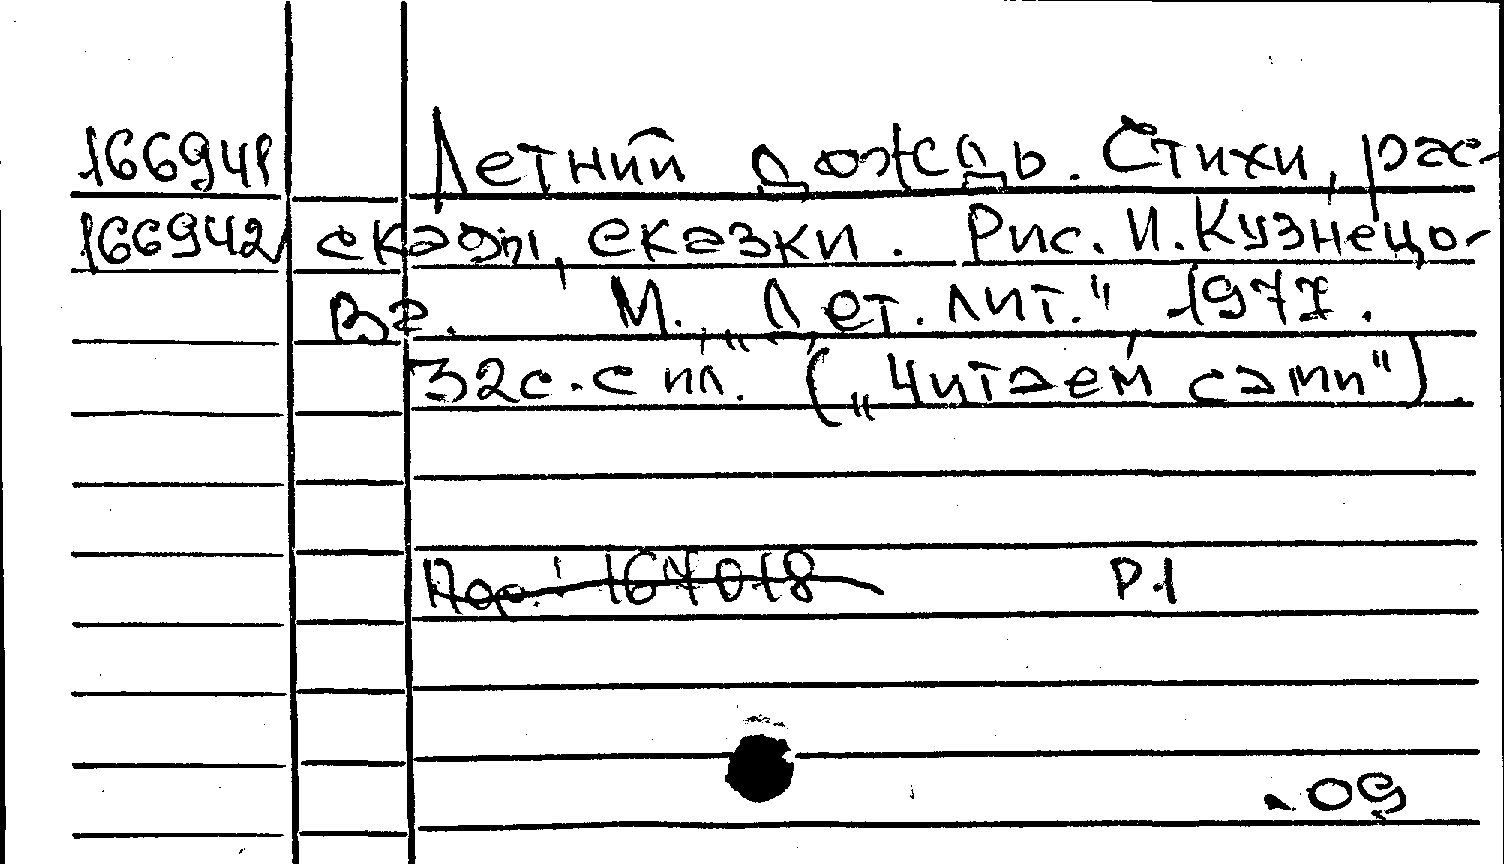 166941 Летний дождь. Стихи, рас-
166942 сказы, сказки. Рис. И. Кузнецо-
ва. М. „Дет. лит." 1977.
32с. с ил. („Читаем сами").
167018 Р.1
.09